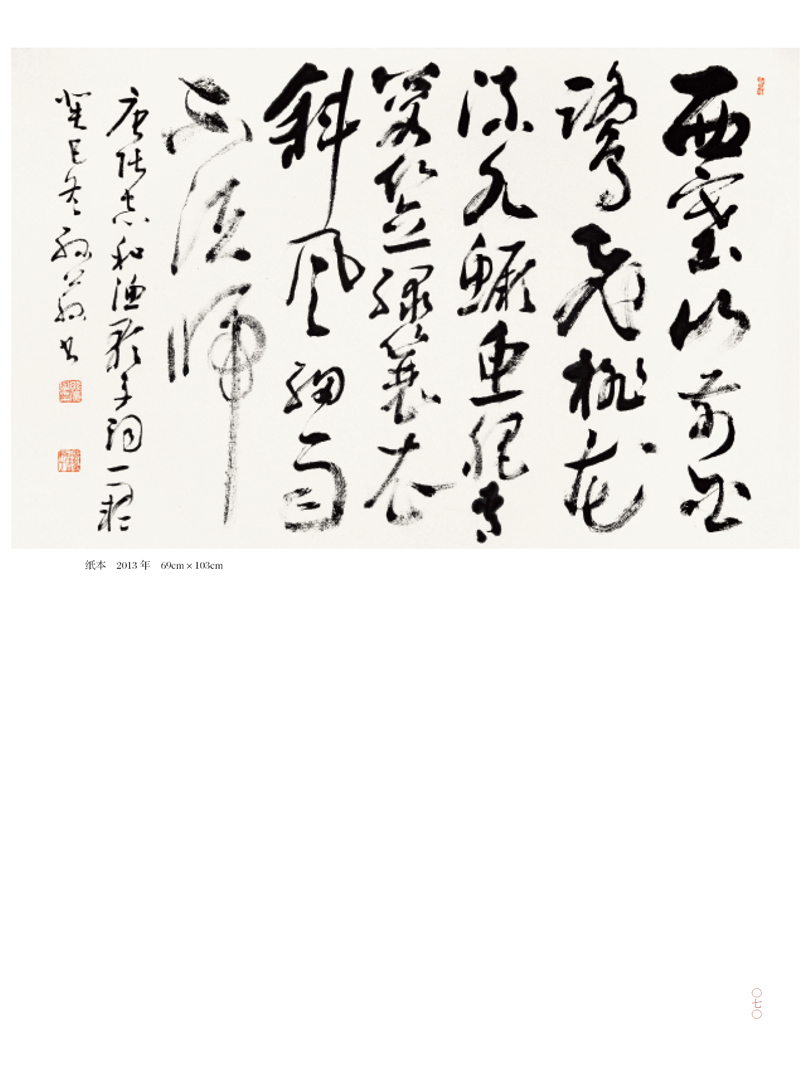 西塞山前白
鷺飛桃花
流水鱖魚肥青
箬笠綠蓑衣
斜風細雨
不須歸
唐張志和漁歌子詞一首
癸巳冬 書
纸本 2013 年 69cm × 103cm
〇七〇